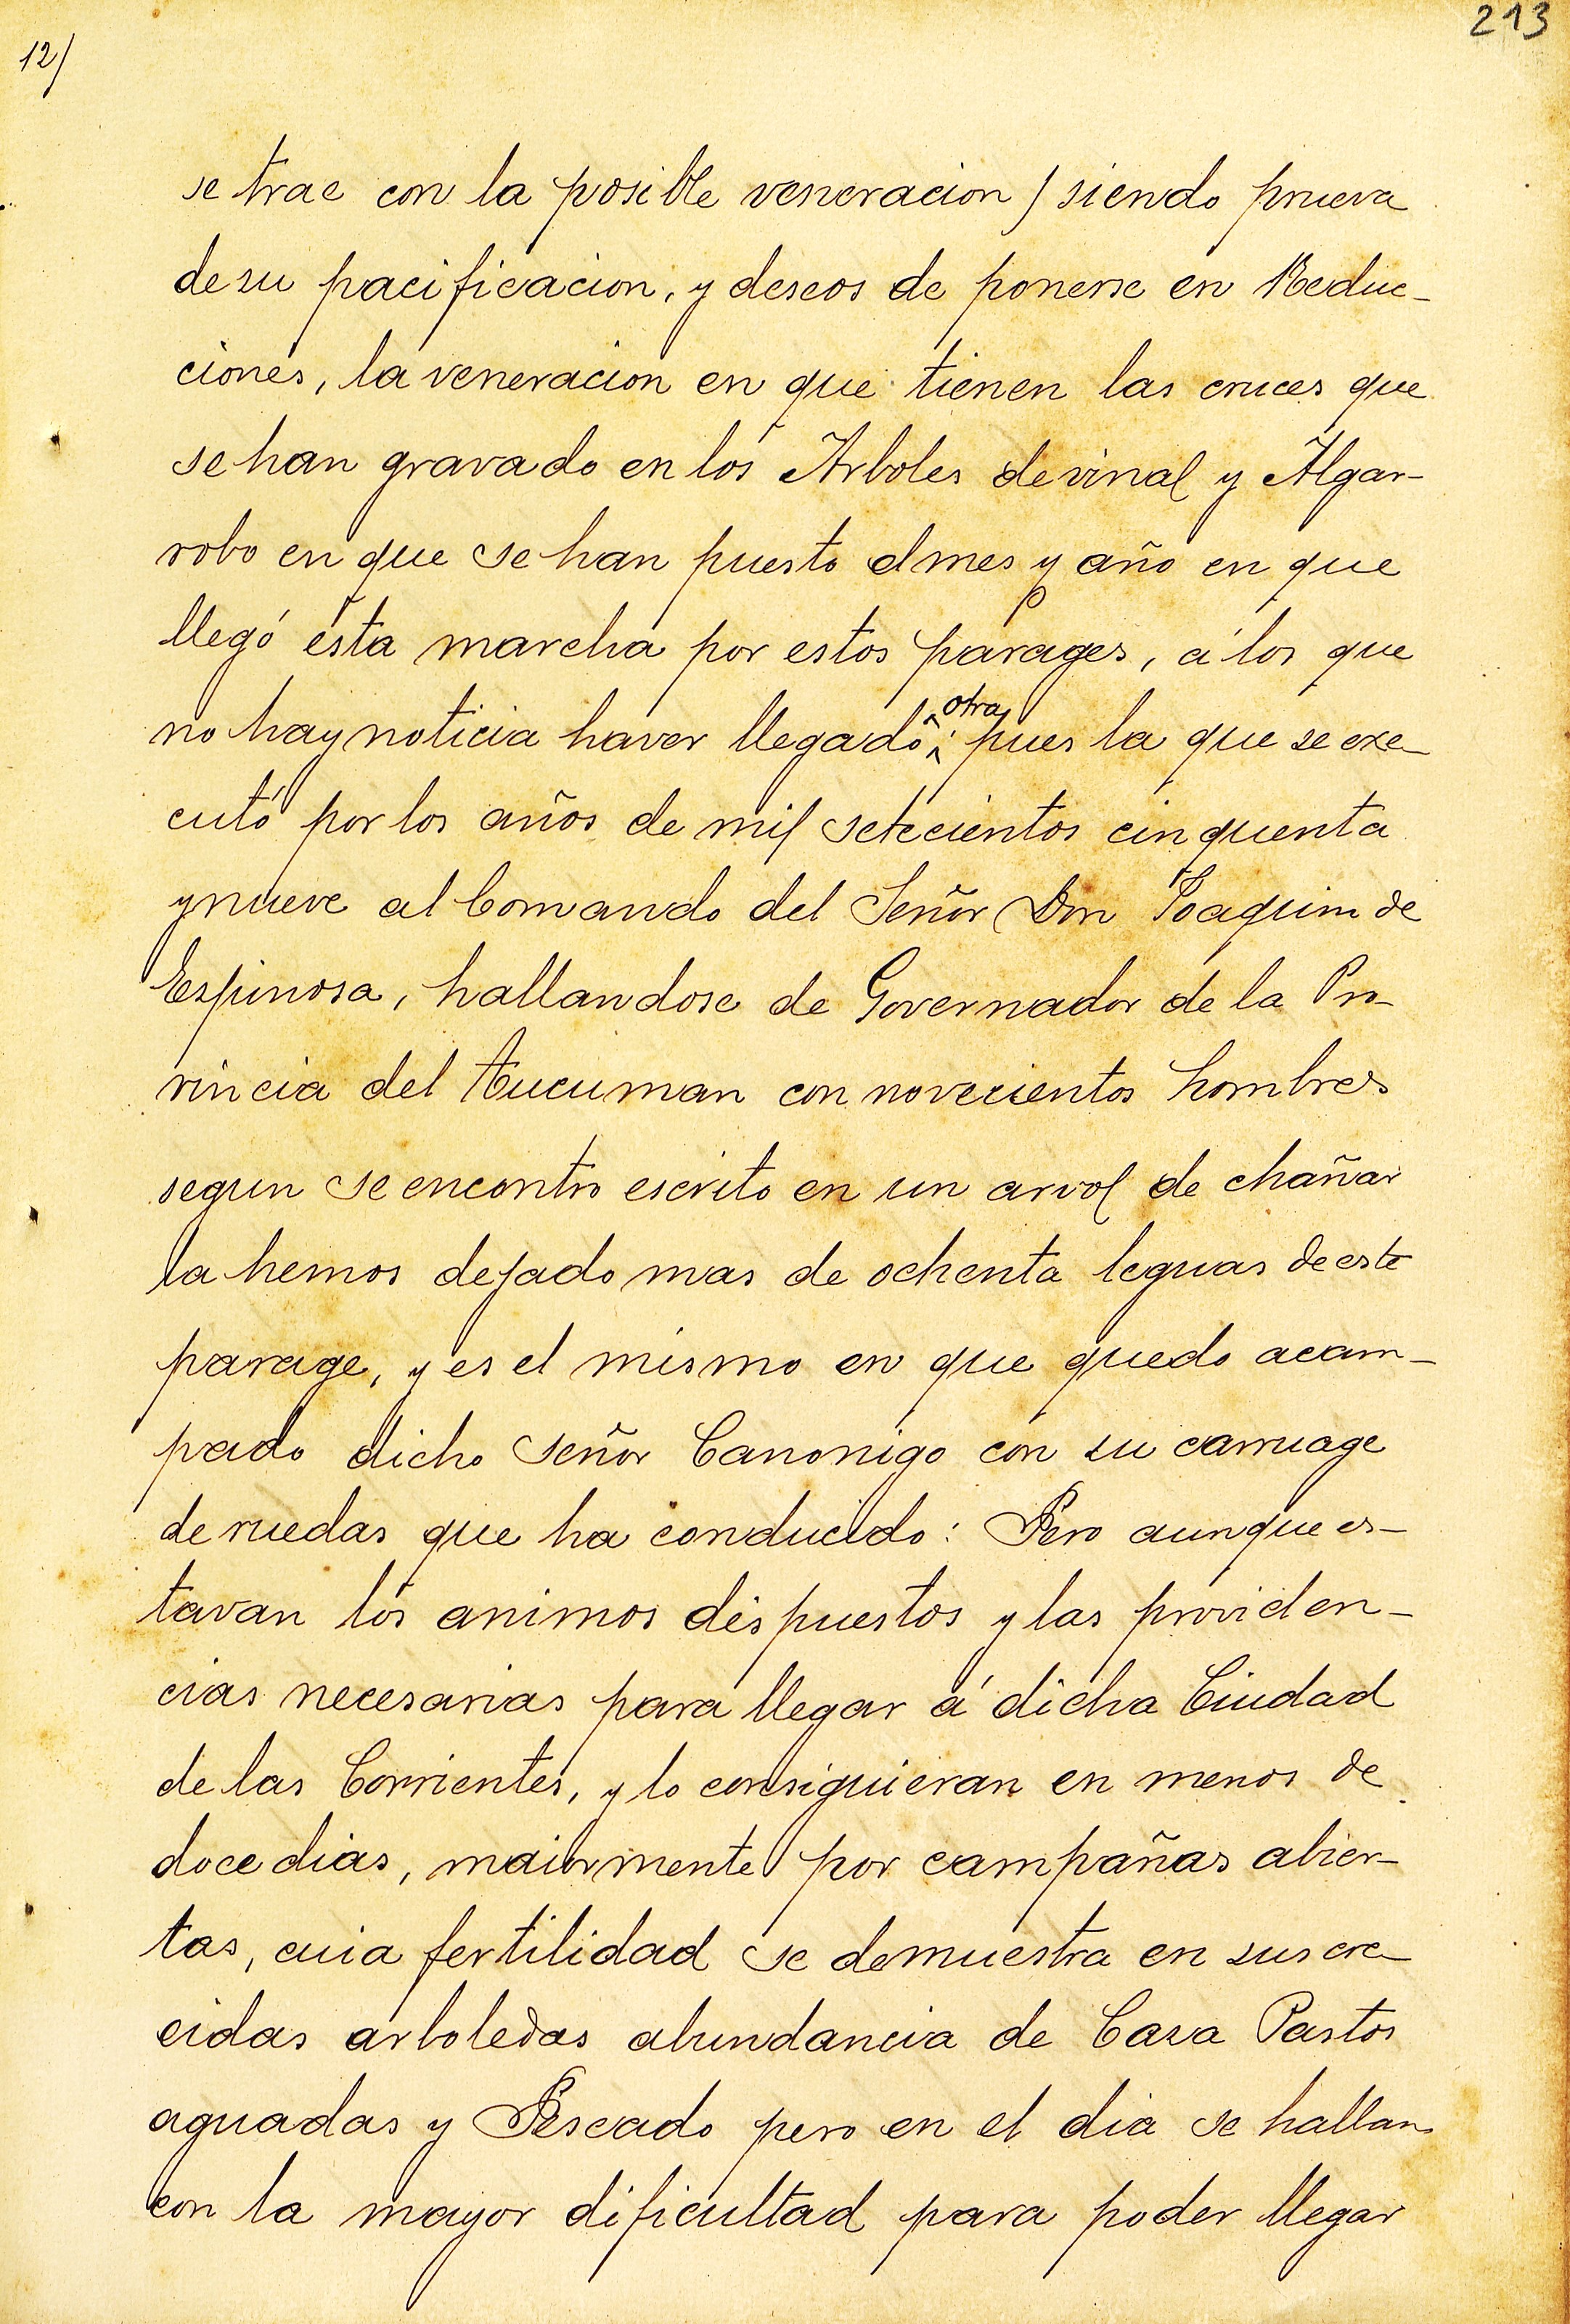 213
12/
se trae con la posible veneracion / siendo prueva
de su pacificacion, y deseos de ponerse en Reduc-
ciones, la veneracion en que tienen las cruces que
se han gravado en los Arboles de vinal y Algar-
robo en que se han puesto el mes y año en que
llegó esta marcha por estos parages, á los que
no hay noticia haver llegado otra; pues la que se exe-
cutó por los años de mil setecientos cinquenta
y nueve al Comando del Señor Don Joaquim de
Espinosa, hallandose de Governador de la Pro-
vincia del Tucuman con novecientos hombres
segun se encontro escrito en un arvol de chañar
la hemos dejado mas de ochenta leguas de este
parage, y es el mismo en que quedo acam-
pado dicho Señor Canonigo con su carruage
de ruedas que ha conducido: Pero aunque es-
tavan los animos dispuestos y las providen-
cias necesarias para llegar á dicha Ciudad
de las Corrientes, y lo consiguieran en menos de
doce dias, maiormente por campañas abier-
tas, cuia fertilidad se demuestra en sus cre-
cidas arboledas abundancia de Caza Pastos
aguadas y Pescado pero en el dia se hallan
con la mayor dificultad para poder llegar